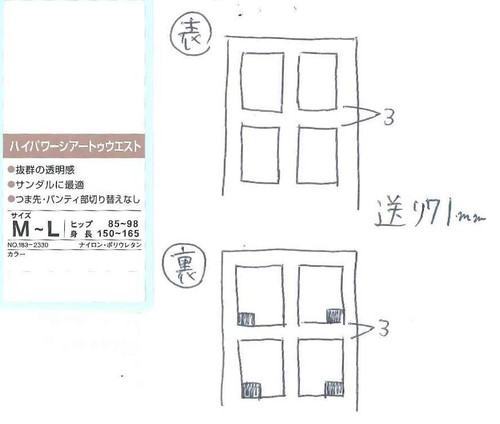 ハイパワーシアートゥウエスト
●抜群の透明感
●サンダルに最適
●つま先・パンティ部切り替えなし
サイズ
M~L
ヒップ 85~98
身長 150~165
NO.183-2330 ナイロン・ポリウレタン
カラー
表
3
送り71mm
裏
3